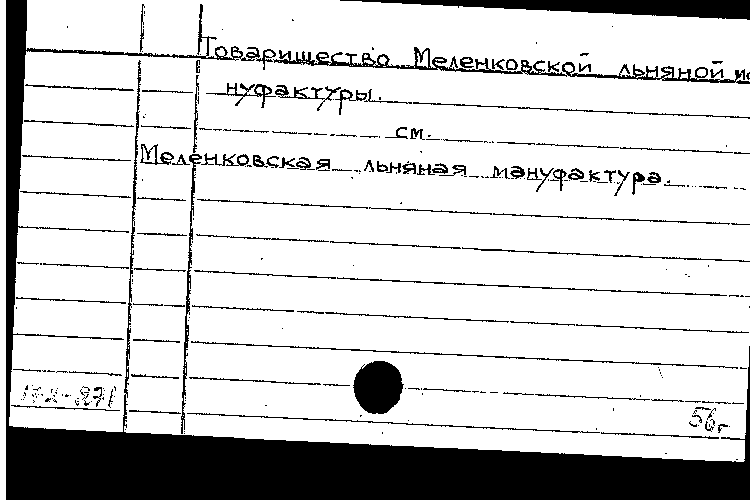 Товарищество Меленковской льняной ма
нуфактуры.
см.
Меленковская льняная мануфактура.
56г